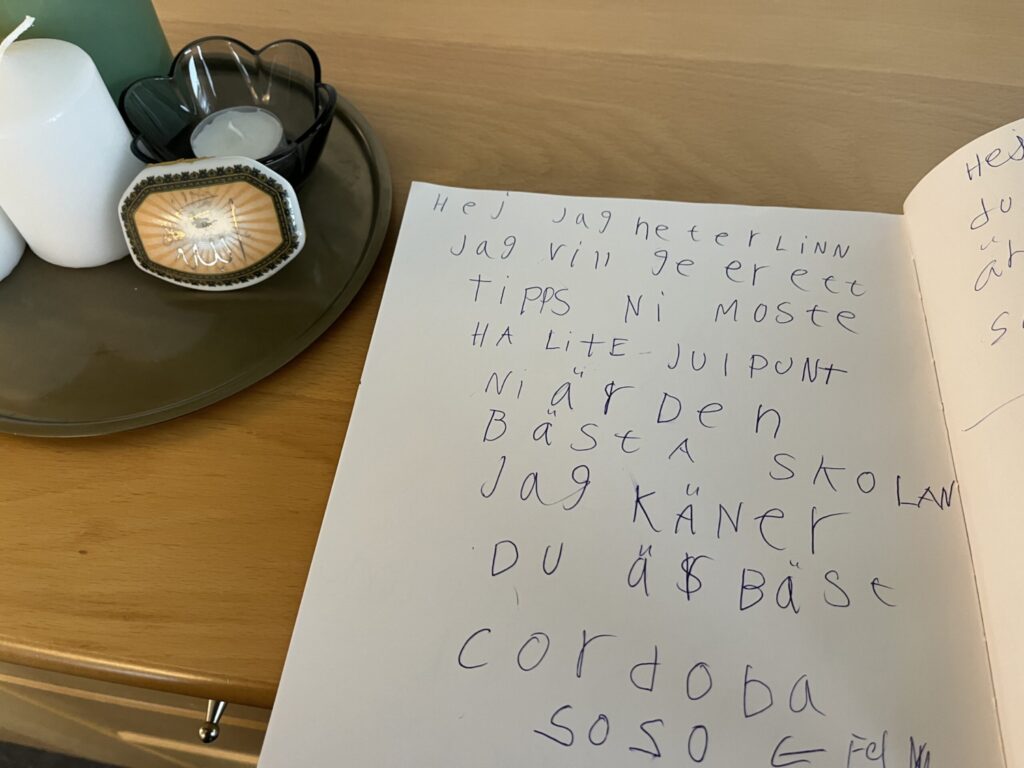 Hej Jag heter LiNN
Jag vill ge er ett
TiPPS Ni MOSTe
HA LiTE JUlPUNT
Ni är Den
BäStA SKOLAN
Jag KÄNer
DU ä$ BäSt
cordoba
SOSO ←
Hej
du
är